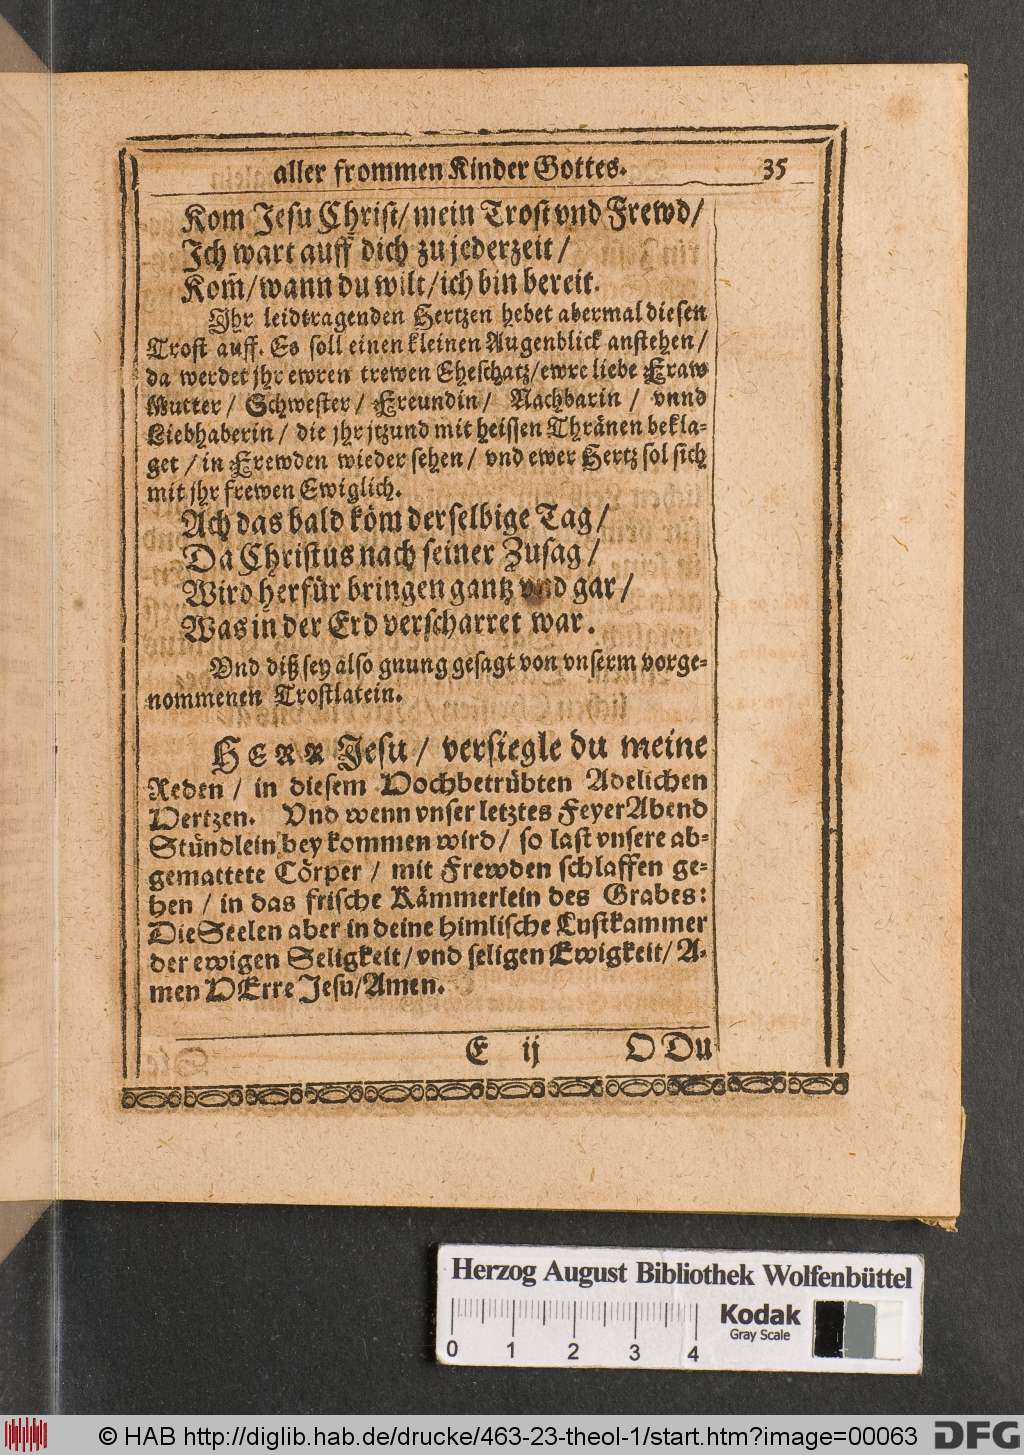 aller frommen Kinder Gottes. 35
Kom Jesu Christ/ mein Trost vnd Frewd/
Ich wart auff dich zu jederzeit/
Kom̃/ wann du wilt/ ich bin bereit.
Jhr leidtragenden Hertzen hebet abermal diesen
Trost auff. Es soll einen kleinen Augenblick anstehen/
da werdet jhr ewren trewen Eheschatz/ ewre liebe Fraw
Mutter/ Schwester/ Freundin/ Nachbarin/ vnnd
Liebhaberin/ die jhr jtzund mit heissen Thränen bekla-
get/ in Frewden wieder sehen/ vnd ewer Hertz sol sich
mit jhr frewen Ewiglich.
Ach das bald köm derselbige Tag/
Da Christus nach seiner Zusag/
Wird herfür bringen gantz vnd gar/
Was in der Erd verscharret war.
Vnd diß sey also gnung gesagt von vnserm vorge-
nommenen Trostlatein.
HERR Jesu/ versiegle du meine
Reden/ in diesem Hochbetrübten Adelichen
Hertzen. Vnd wenn vnser letztes FeyerAbend
Stündlein bey kommen wird/ so last vnsere ab-
gemattete Cörper/ mit Frewden schlaffen ge-
hen/ in das frische Kämmerlein des Grabes:
Die Seelen aber in deine himlische Lustkammer
der ewigen Seligkeit/ vnd seligen Ewigkeit/ A-
men HErre Jesu/ Amen.
E ij O Du
Herzog August Bibliothek Wolfenbüttel
0 1 2 3 4
Kodak
Gray Scale
© HAB http://diglib.hab.de/drucke/463-23-theol-1/start.htm?image=00063
DFG